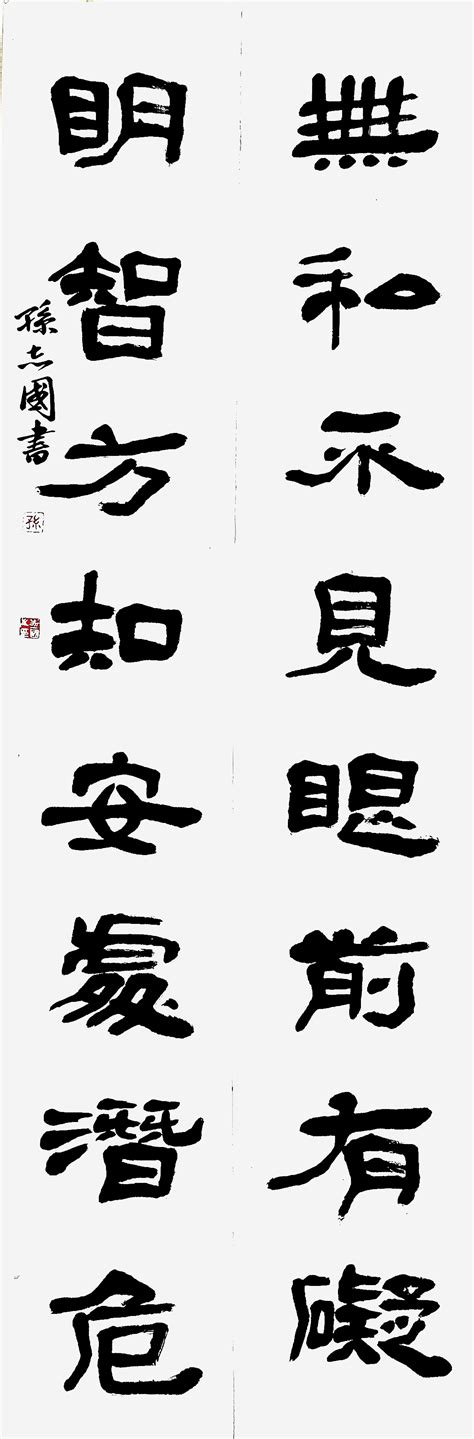 無和不見眼前有礙
眀智方知安處潛危
孫志國書
孫